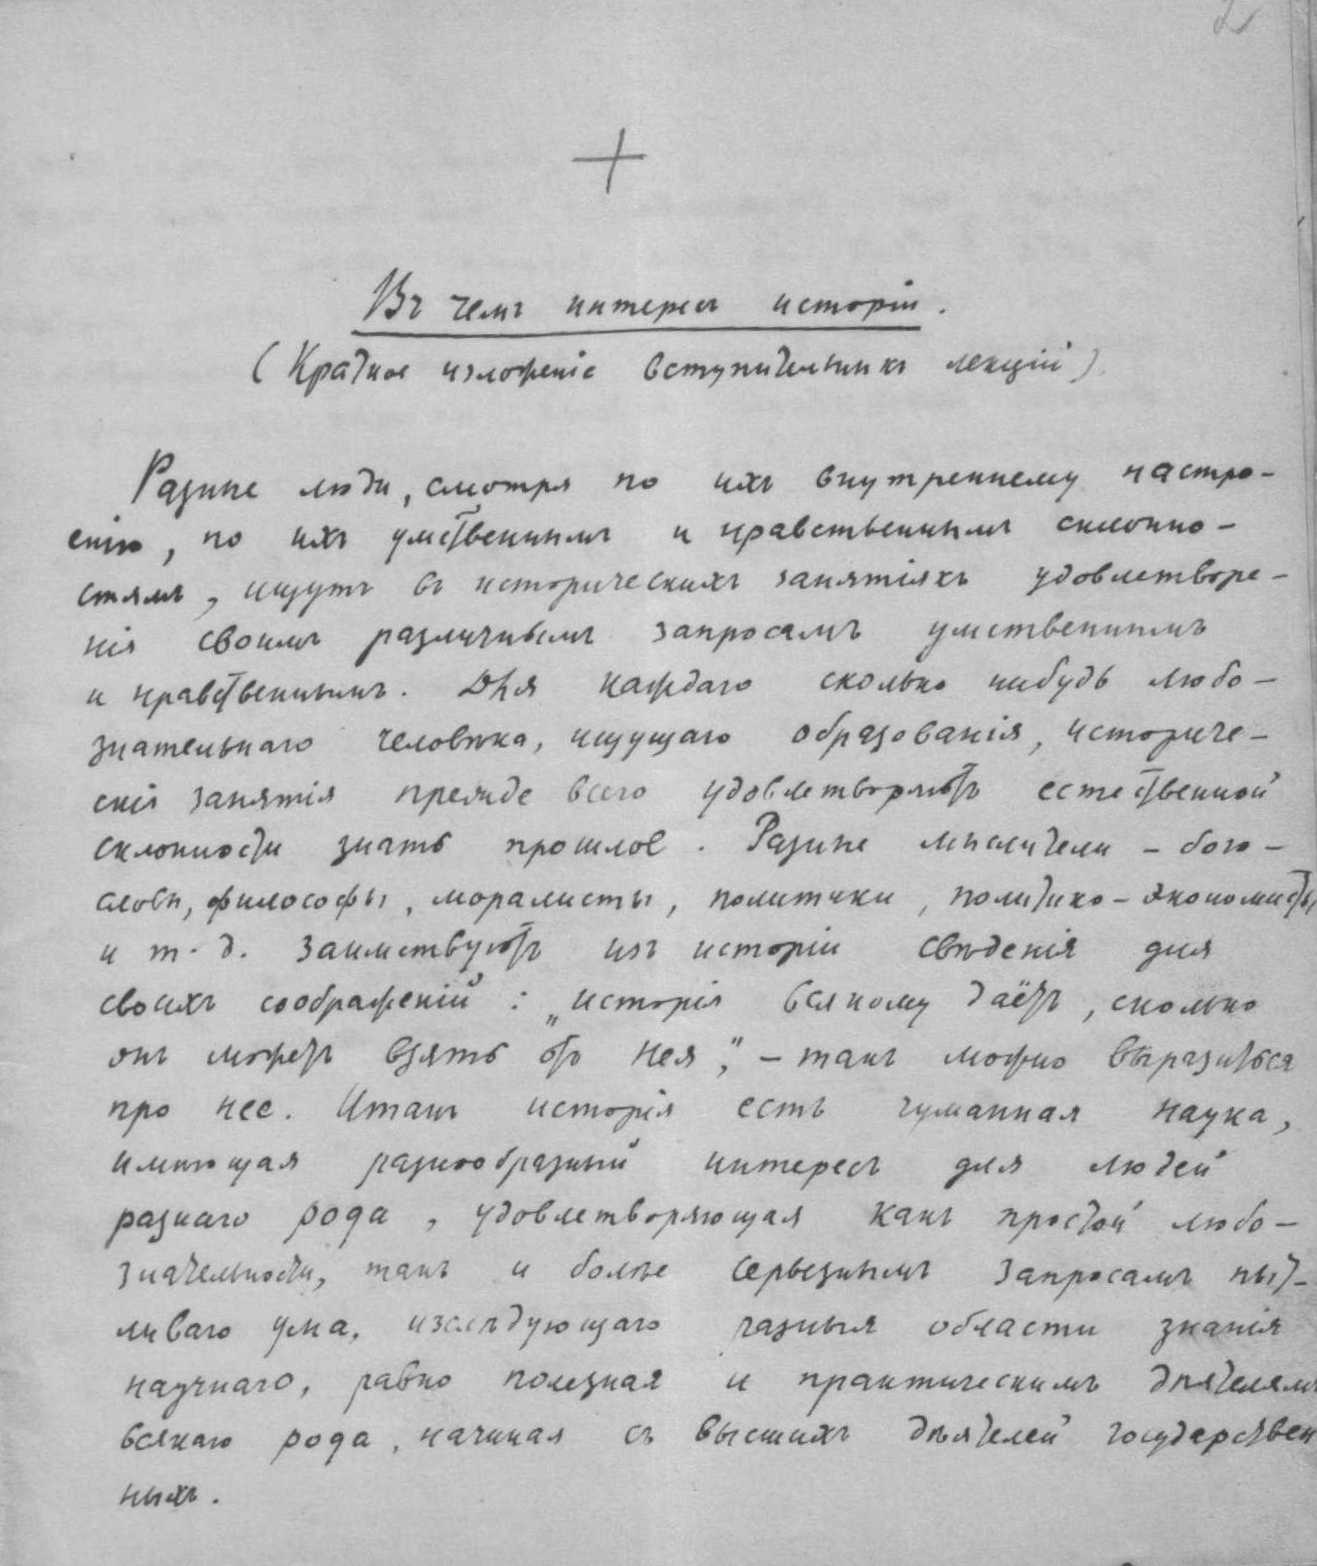 2
Въ чемъ интересъ исторіи.
(Краткое изложеніе вступительныхъ лекцій)
Разные люди, смотря по ихъ внутреннему настро-
енію, по ихъ умственнымъ и нравственнымъ склонно-
стямъ, ищутъ въ историческихъ занятіяхъ удовлетворе-
нія своимъ различнымъ запросамъ умственнымъ
и нравственнымъ. Для каждаго сколько нибудь любо-
знательнаго человѣка, ищущаго образованія, историче-
скія занятія прежде всего удовлетворяютъ естественной
склонности знать прошлое. Разные мыслители – бого-
словы, философы, моралисты, политики, политико-экономисты
и т. д. заимствуютъ изъ исторіи свѣденія для
своихъ соображеній: „исторія всякому даётъ, сколько
онъ можетъ взять отъ нея," – такъ можно выразиться
про нее. Итакъ исторія есть гуманная наука,
имѣющая разнообразный интересъ для людей
разнаго рода, удовлетворяющая какъ простой любо-
знательности, такъ и болѣе серьезнымъ запросамъ пыт-
ливаго ума, изслѣдующаго разныя области знанія
научнаго, равно полезная и практическимъ дѣятелямъ
всякаго рода, начиная съ высшихъ дѣятелей государствен
ныхъ.